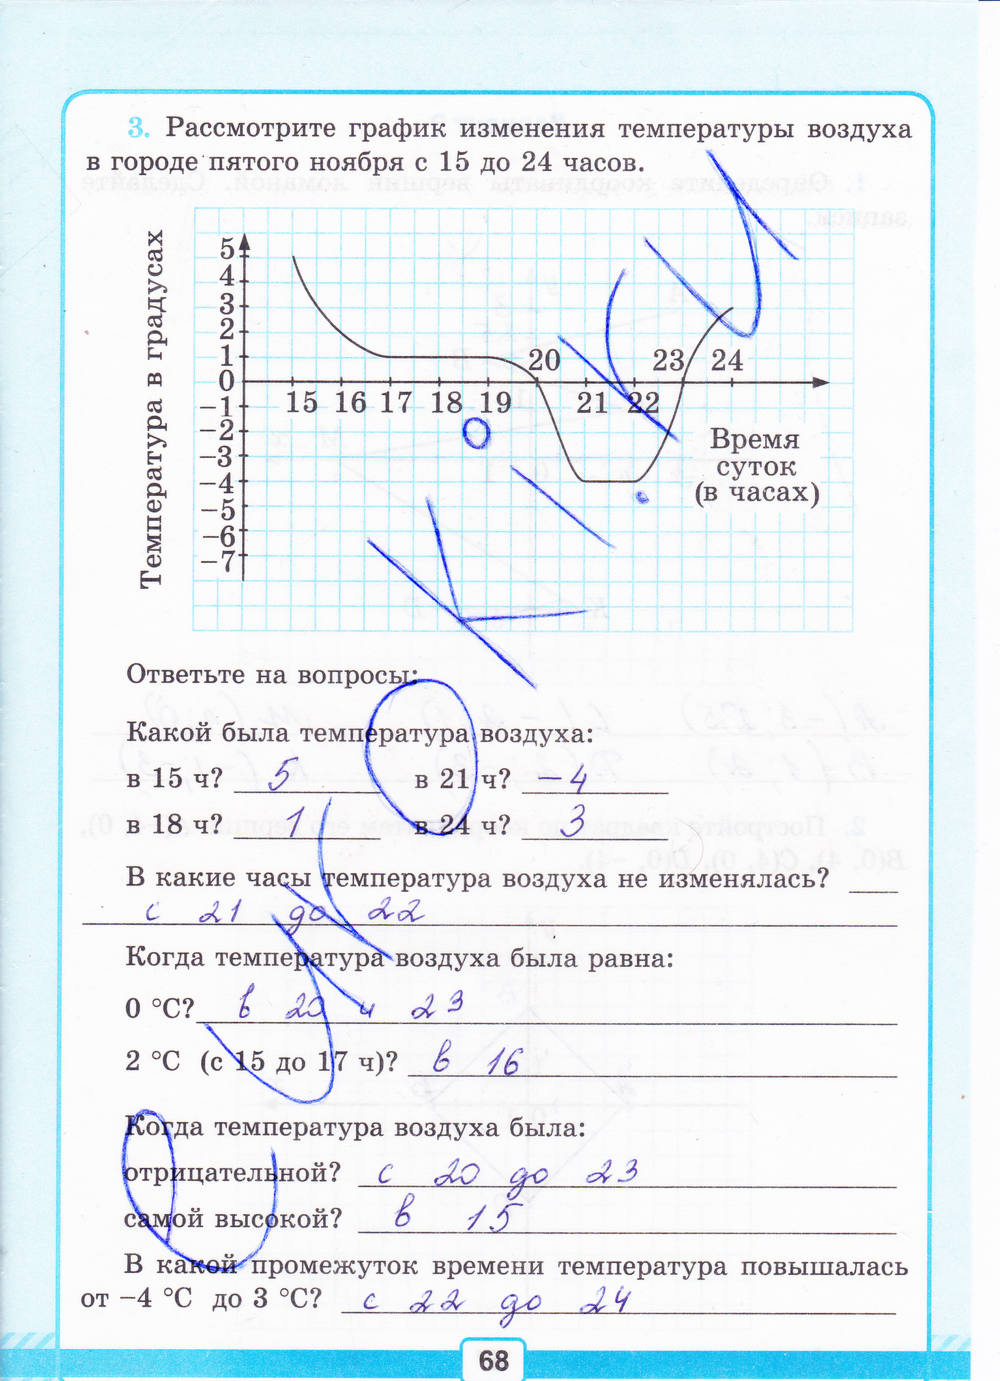 3. Рассмотрите график изменения температуры воздуха
в городе пятого ноября с 15 до 24 часов.
Температура в градусах
5
4
3
2
1
0
−1
−2
−3
−4
−5
−6
−7
15 16 17 18 19 20 21 22 23 24
Время
суток
(в часах)
Ответьте на вопросы:
Какой была температура воздуха:
в 15 ч? 5 в 21 ч? −4
в 18 ч? 1 в 24 ч? 3
В какие часы температура воздуха не изменялась?
с 21 до 22
Когда температура воздуха была равна:
0 °С? в 20 и 23
2 °С (с 15 до 17 ч)? в 16
Когда температура воздуха была:
отрицательной? с 20 до 23
самой высокой? в 15
В какой промежуток времени температура повышалась
от −4 °С до 3 °С? с 22 до 24
68